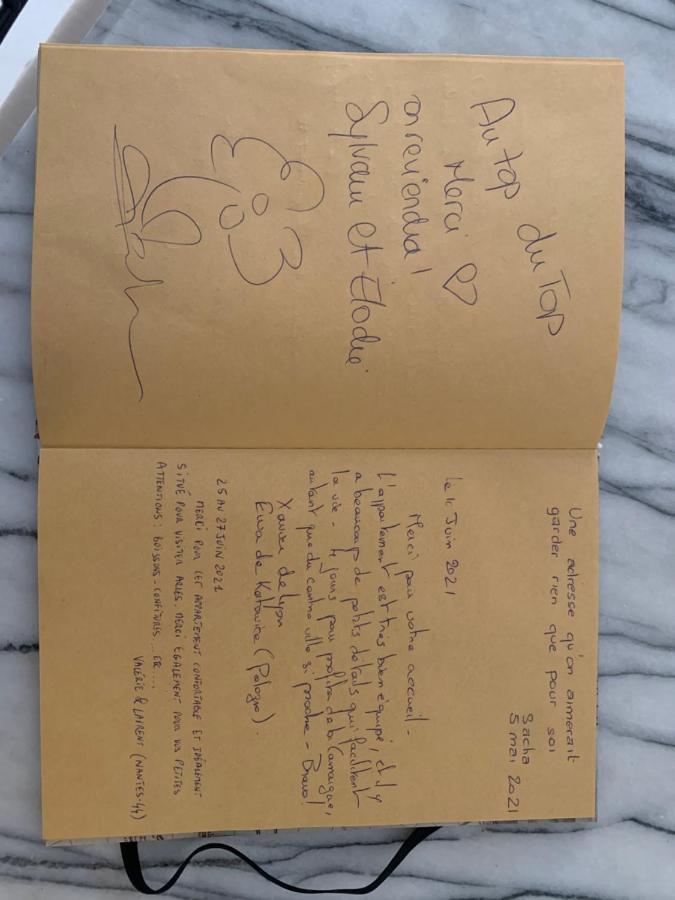 Au top du Top
Merci ♡
on reviendra!
Sylvain et Élodie
Une adresse qu'on aimerait
garder rien que pour soi
Sacha
5 mai 2021
Le 10 Juin 2021
Merci pour votre accueil -
L'appartement est très bien équipé, et il y
a beaucoup de petits détails qui facilitent
la vie - 4 jours pour profiter de la Camargue,
autant que du centre ville si proche - Bravo!
Xavier de Lyon
Ewa de Katowice (Pologne).
25 AU 27 JUIN 2021
MERCI POUR CET APPARTEMENT CONFORTABLE ET IDÉALEMENT
SITUÉ POUR VISITER ARLES. MERCI EGALEMENT POUR VOS PETITES
ATTENTIONS : BOISSONS - CONFITURES ...
VALÉRIE & LAURENT (NANTES-44)